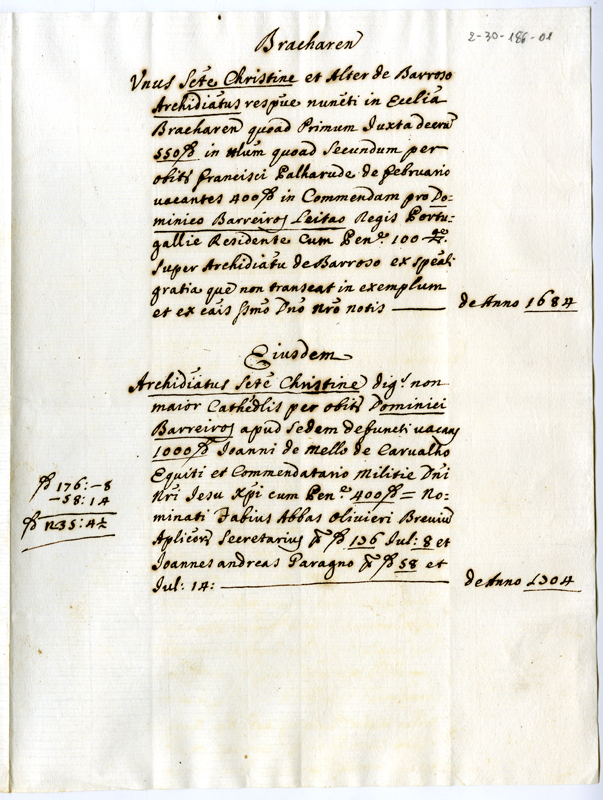 2-30-186-01
Bracharen
Vnus Scte Christine et Alter de Barroso
Archidiatus respue nuncti in Ecclia
Bracharen quoad Primum Juxta decrū
550 in quoad Secundum per
obitū Francisci Palharude de Februario
vacantes 400 in Commendam pro Do:
minico Barreiros Leitao Regis Portu:
gallie Residente Cum Pene 100
Super Archidiatu de Barroso ex speali
gratia que non transeat in exemplum
et ex cais Ssmo Dno Nro notis — de Anno 1684
Eiusdem
Archidiatus Scte Christine digt non
maior Cathedlis per obitū Dominici
Barreiros apud Sedem defuncti vacans
1000 Joanni de Mello de Carvalho
Equiti et Commendatario Militie Dni
Nri Jesu Xpi cum Pene 400 = No:
minati Fabius Abbas Olivieri Breviū
Aplicorū Secretarius 136 Jul: 8 et
Joannes andreas Paragno 58 et
Jul: 14: — de Anno 1704
176:-8
-58:14